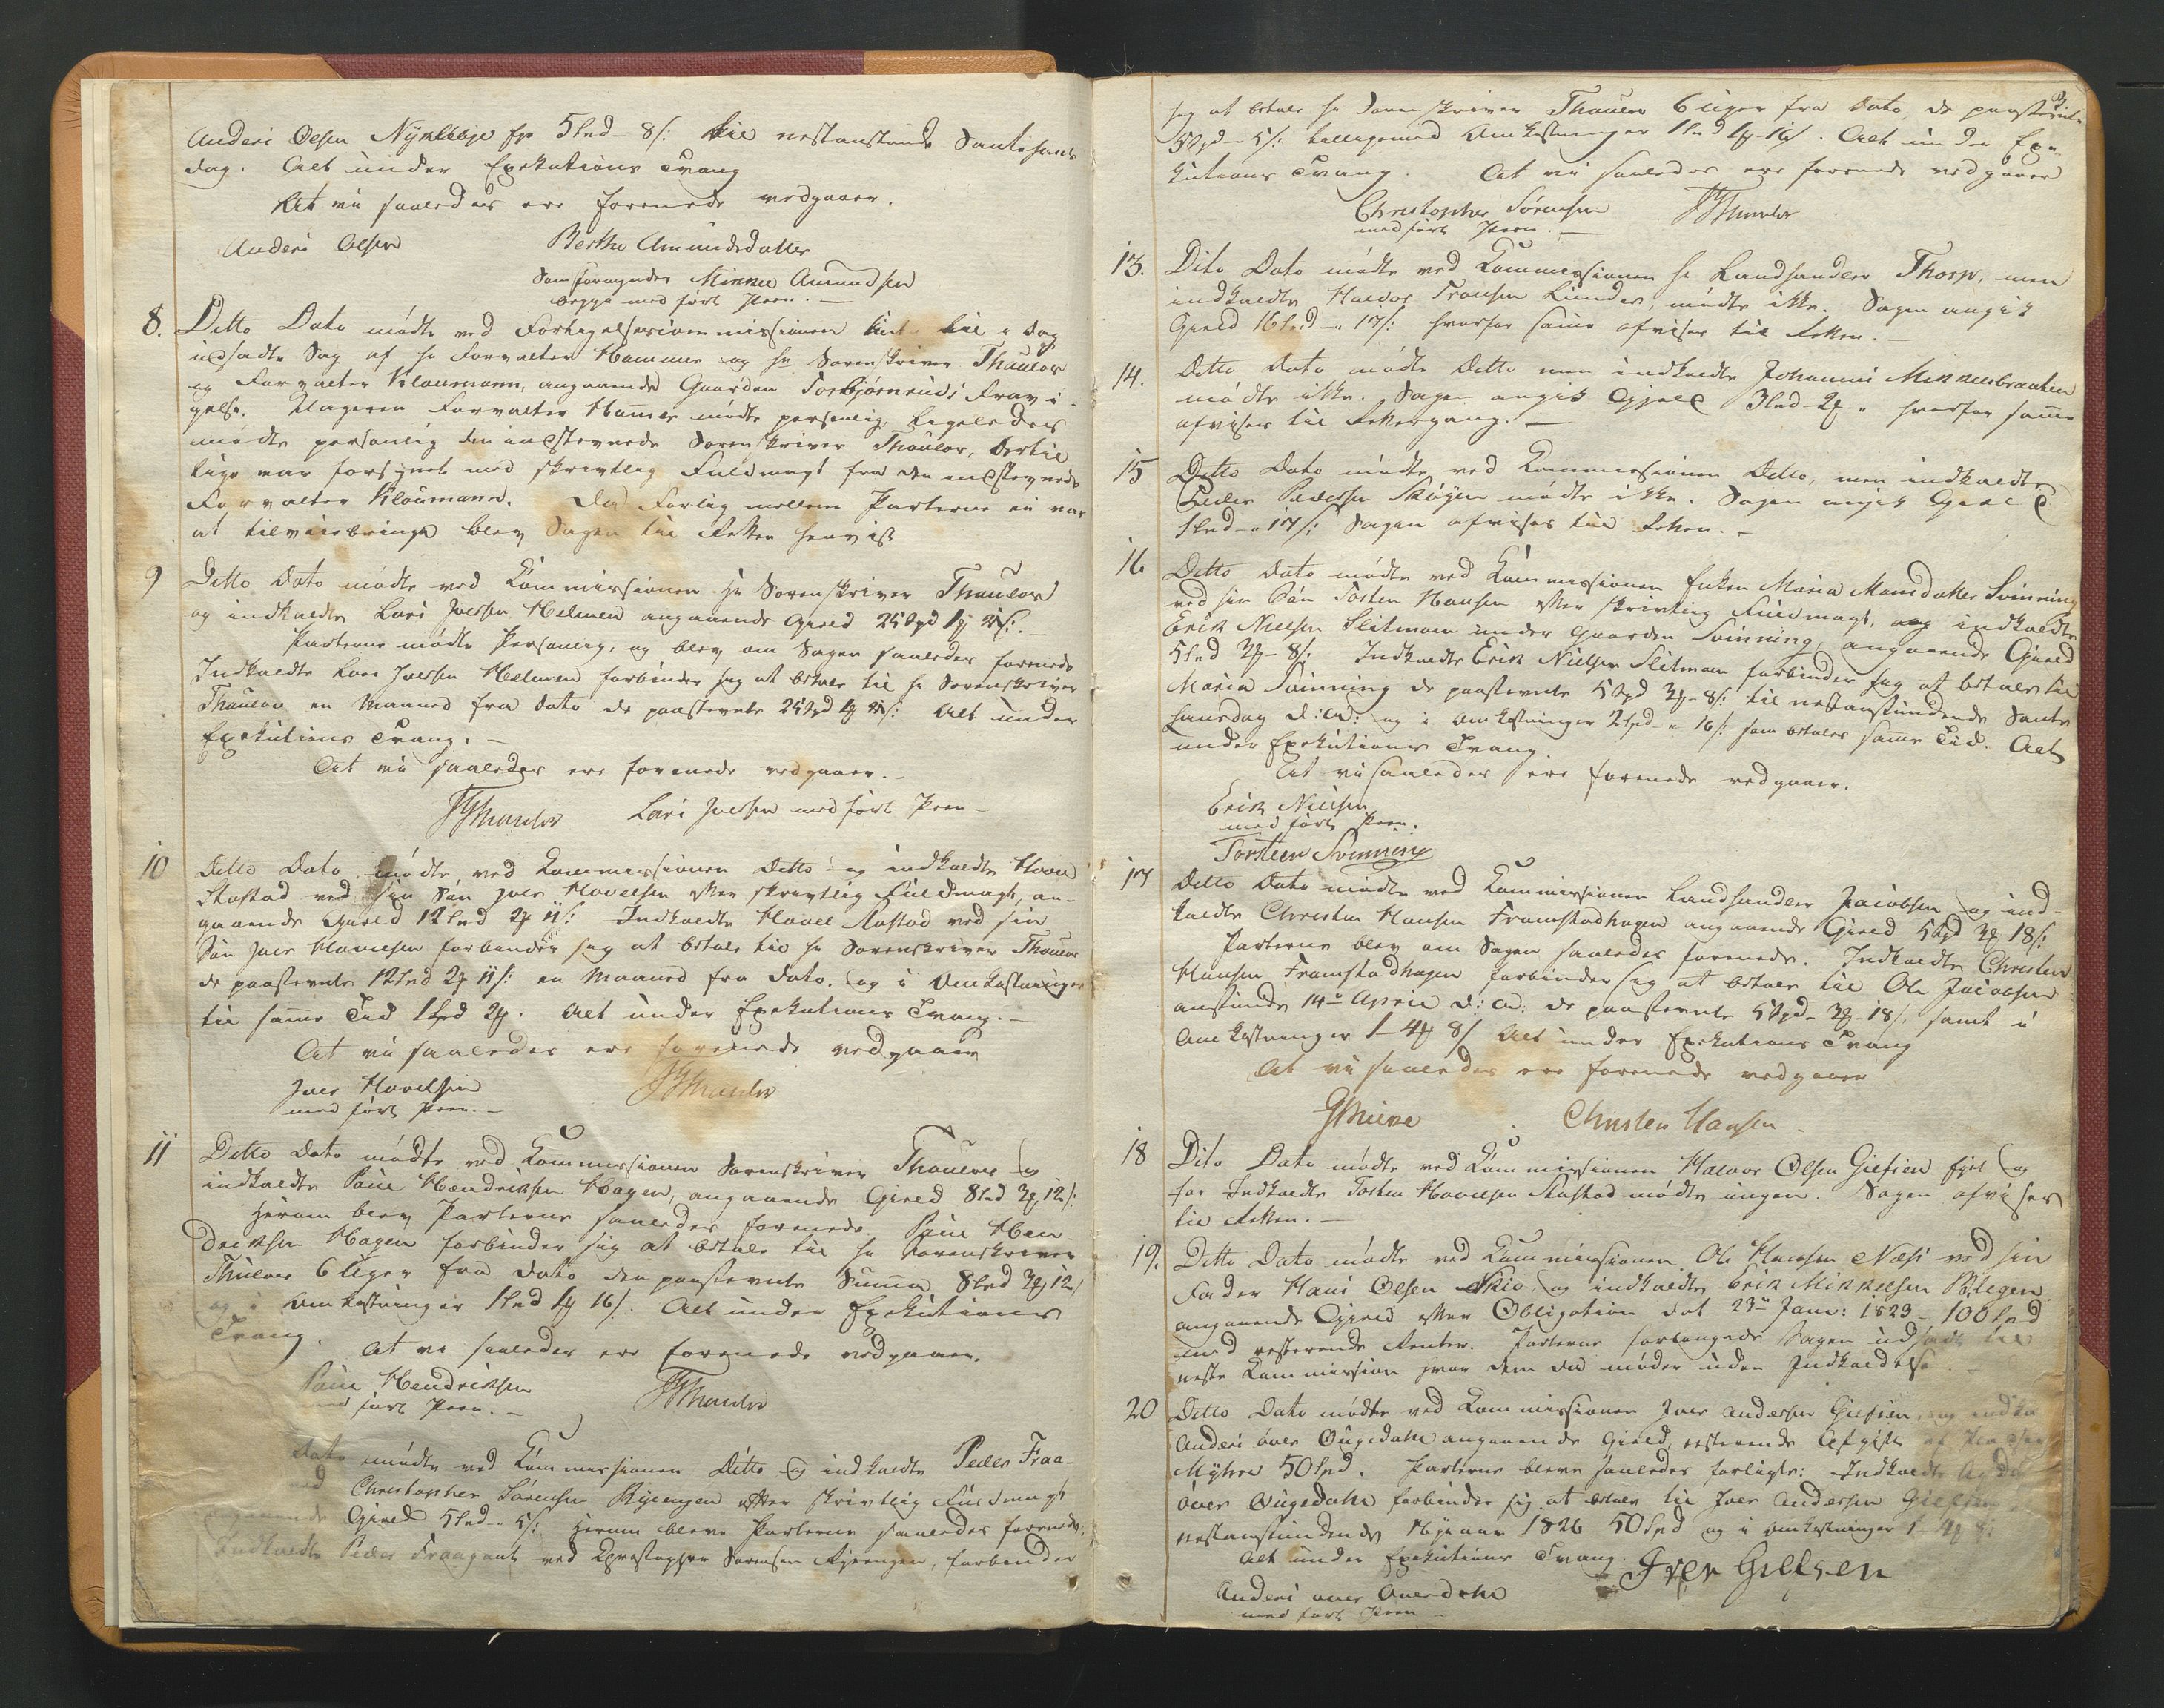 Anders Olsen Nyklebye fp 5 Spd - 8/: til nestanstaaende Santehans
dag. Alt under Exekutions Tvang
At vi saaledes ere forenede vedgaaer.
Anders Olsen Berthe Amundsdatter
Som formynder Mikkel Amundsen
begge med ført Pæn. —
8. Ditto Dato mødte ved Forligelsescommissionen til i Dag
udsadte Sag af Hr Forvalter Hammer og Hr Sorenskriver Thaulow
og Forvalter Kloumann, angaaende Gaarden Torbjørnruds Fravi-
gelse. Klageren Forvalter Hamer mødte personlig, ligeledes
mødte personlig den indstevnede Sorenskriver Thaulow, dertil
lige var forsynet med skrivtlig Fuldmagt fra den indstevnede
Forvalter Kloumann. Da Forlig mellem Parterne ei var
at tilveiebringe blev Sagen til Retten henvist
9 Ditto Dato mødte ved Kommissionen Hr Sorenskriver Thaulow
og indkaldte Lars Iversen Helmen angaaende Gjeld 25 Spd 1 ꝟ 21/: —
Parterne mødte Personlig, og blev om Sagen saaledes forenede
Indkaldte Lars Iversen Helmen forbinder sig at betale til Hr Sorenskriver
Thaulow en Maaned fra Dato de paastevnte 25 Spd 1 ꝟ 21/: Alt under
Exekutions Tvang. —
At vi saaledes ere forenede vedgaaer. —
Thaulow Lars Iversen med ført Pæn —
10 Ditto Dato mødte ved Kommissionen Ditto og indkaldte Hovel
Stastad ved sin Søn Iver Hovelsen efter skrivtlig Fuldmagt, an-
gaaende Gjeld 12 Spd 2 ꝟ 11/: Indkaldte Hovel Stastad ved sin
Søn Iver Hovelsen forbinder sig at betale til Hr Sorenskriver Thaulow
de paastevnte 12 Spd 2 ꝟ 11/: en Maaned fra Dato. og i Omkostninger
til samme Tid 1 Spd 2 ꝟ. Alt under Exekutions Tvang. —
At vi saaledes ere forenede vedgaaer
Iver Hovelsen Thaulow
med ført Pæn. —
11 Ditto Dato mødte ved Kommissionen Sorenskriver Thaulow og
indkaldte Poul Hendriksen Hagen, angaaende Gjeld 8 Spd 3 ꝟ 12/:
Herom blev Parterne saaledes forenede. Poul Hen-
driksen Hagen forbinder sig at betale til Hr Sorenskriver
Thulow 6 Uger fra Dato den paastevnte Summa 8 Spd 3 ꝟ 12/
og i Omkostninger 1 Spd 1 ꝟ 16/. Alt under Exekutions
Tvang. At vi saaledes ere forenede vedgaaer.
Poul Hendriksen Thaulow
med ført Pæn. —
Dato mødte ved Kommissionen Ditto og indkaldte Peder Fraa-
ved Christopher Sørensen Rijeengen efter skrivtlig Fuldmagt
Gjeld 5 Spd - 5/: Herom bleve Parterne saaledes forenede,
Indkaldte Peder Fraagaat ved Christopher Sørensen Rijeengen, forbinder
sig at betale Hr Sorenskriver Thaulow 6 Uger fra Dato, de paastevnte
5 Spd - 5/: tilligemed Omkostninger 1 Spd 1 ꝟ - 16/. Alt under Exe-
kutions Tvang. At vi saaledes ere forenede vedgaaer
Christopher Sørensen Thaulow
med ført Pæn. —
13. Dito Dato mødte ved Kommissionen Hr Landhandler Thorp, men
indkaldte Halvor Fransen Lunder mødte ikke. Sagen angik
Gjeld 16 Spd - 17/: hvorfor samme afvises til Retten. —
14. Ditto Dato mødte Ditto men indkaldte Johannes Mikkelsbraaten
mødte ikke. Sagen angik Gjeld 3 Spd - 2 ꝟ - hvorfor samme
afvises til Rettergang. —
15 Ditto Dato mødte ved Kommissionen Ditto, men indkaldte
Peder Pedersen Skøyen mødte ikke. Sagen angik Gjeld
1 Spd - 17/: Sagen afvises til Retten. —
16 Ditto Dato mødte ved Kommissionen Enken Maria Monsdatter Svinning
ved sin Søn Torsten Hansen efter skrivtlig Fuldmagt, og indkaldte
Erik Nielsen Slitmoen under Gaarden Svinning, angaaende Gjeld
5 Spd 3 ꝟ - 8/: Indkaldte Erik Nielsen Slitmoen forbinder sig at betale til
Maria Svinning de paastevnte 5 Spd 3 ꝟ - 8/: til nestanstundende Sante
Hansdag d: A: og i Omkostninger 2 Spd - 16/: som betales samme Tid. Alt
under Exekutions Tvang.
At vi saaledes ere forenede vedgaaer.
Erik Nielsen
med ført Pæn.
Torsteen Svinning
17 Ditto Dato mødte ved Kommissionen Landhandler Jacobsen og ind-
kaldte Christen Hansen Framstadhagen angaaende Gjeld 5 Spd 3 ꝟ 18/:
Parterne blev om Sagen saaledes forenede. Indkaldte Christen
Hansen Framstadhagen forbinder sig at betale til Ole Jacobsen
anstundende 14de April d: A: de paastevnte 5 Spd - 3 ꝟ - 18/. samt i
Omkostninger 1 - 4 ꝟ 8/ Alt under Exekutions Tvang
At vi saaledes ere forenede vedgaaer
Christen Hansen
18 Dito Dato mødte ved Kommissionen Halvor Olsen Gielsien og
for Indkaldte Torsten Hovelsen Stastad mødte ingen. Sagen afvises
til Retten. —
19. Ditto Dato mødte ved Kommissionen Ole Hansen Næss ved sin
Fader Hans Olsen og indkaldte Erik Mikkelsen
angaaende Gjeld efter Obligation dat 23de Janu: 1823 - 100 Spd
med resterende Renter. Parterne forlangede Sagen udsadt til
neste Kommission hvor dem da møder uden Indkaldelse —
20 Ditto Dato mødte ved Kommissionen Iver Andersen Gielsien, og
Anders over angaaende Gjeld, resterende Afgift af
Myhre 50 Spd. Parterne bleve saaledes forligte: Indkaldte
over forbinder sig at betale til Iver Andersen
nestanstundende Nyaar 1826 50 Spd og i Omkostninger 1 - 4 ꝟ 8
Alt under Exekutions Tvang. Iver Gielsen
Anders over
med ført Pæn —